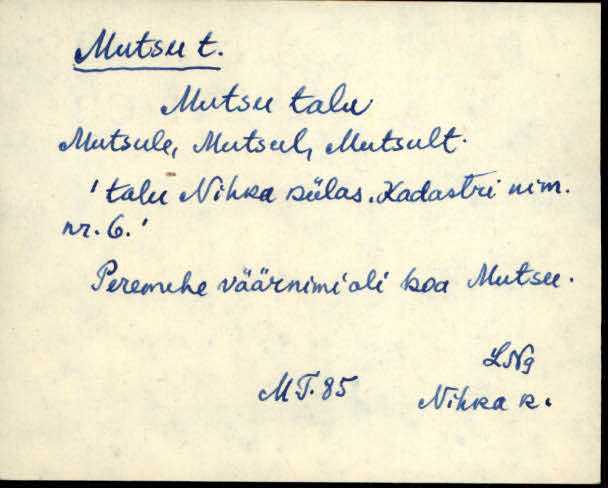 Mutsu t.
Mutsu talu
Mutsule, Mutsul, Mutsult.
'talu Nihka külas. Kadastri nim.
nr. 6.'
Peremehe väärnimi oli koa Mutsu.
LNg
M T. 85 Nihka k.